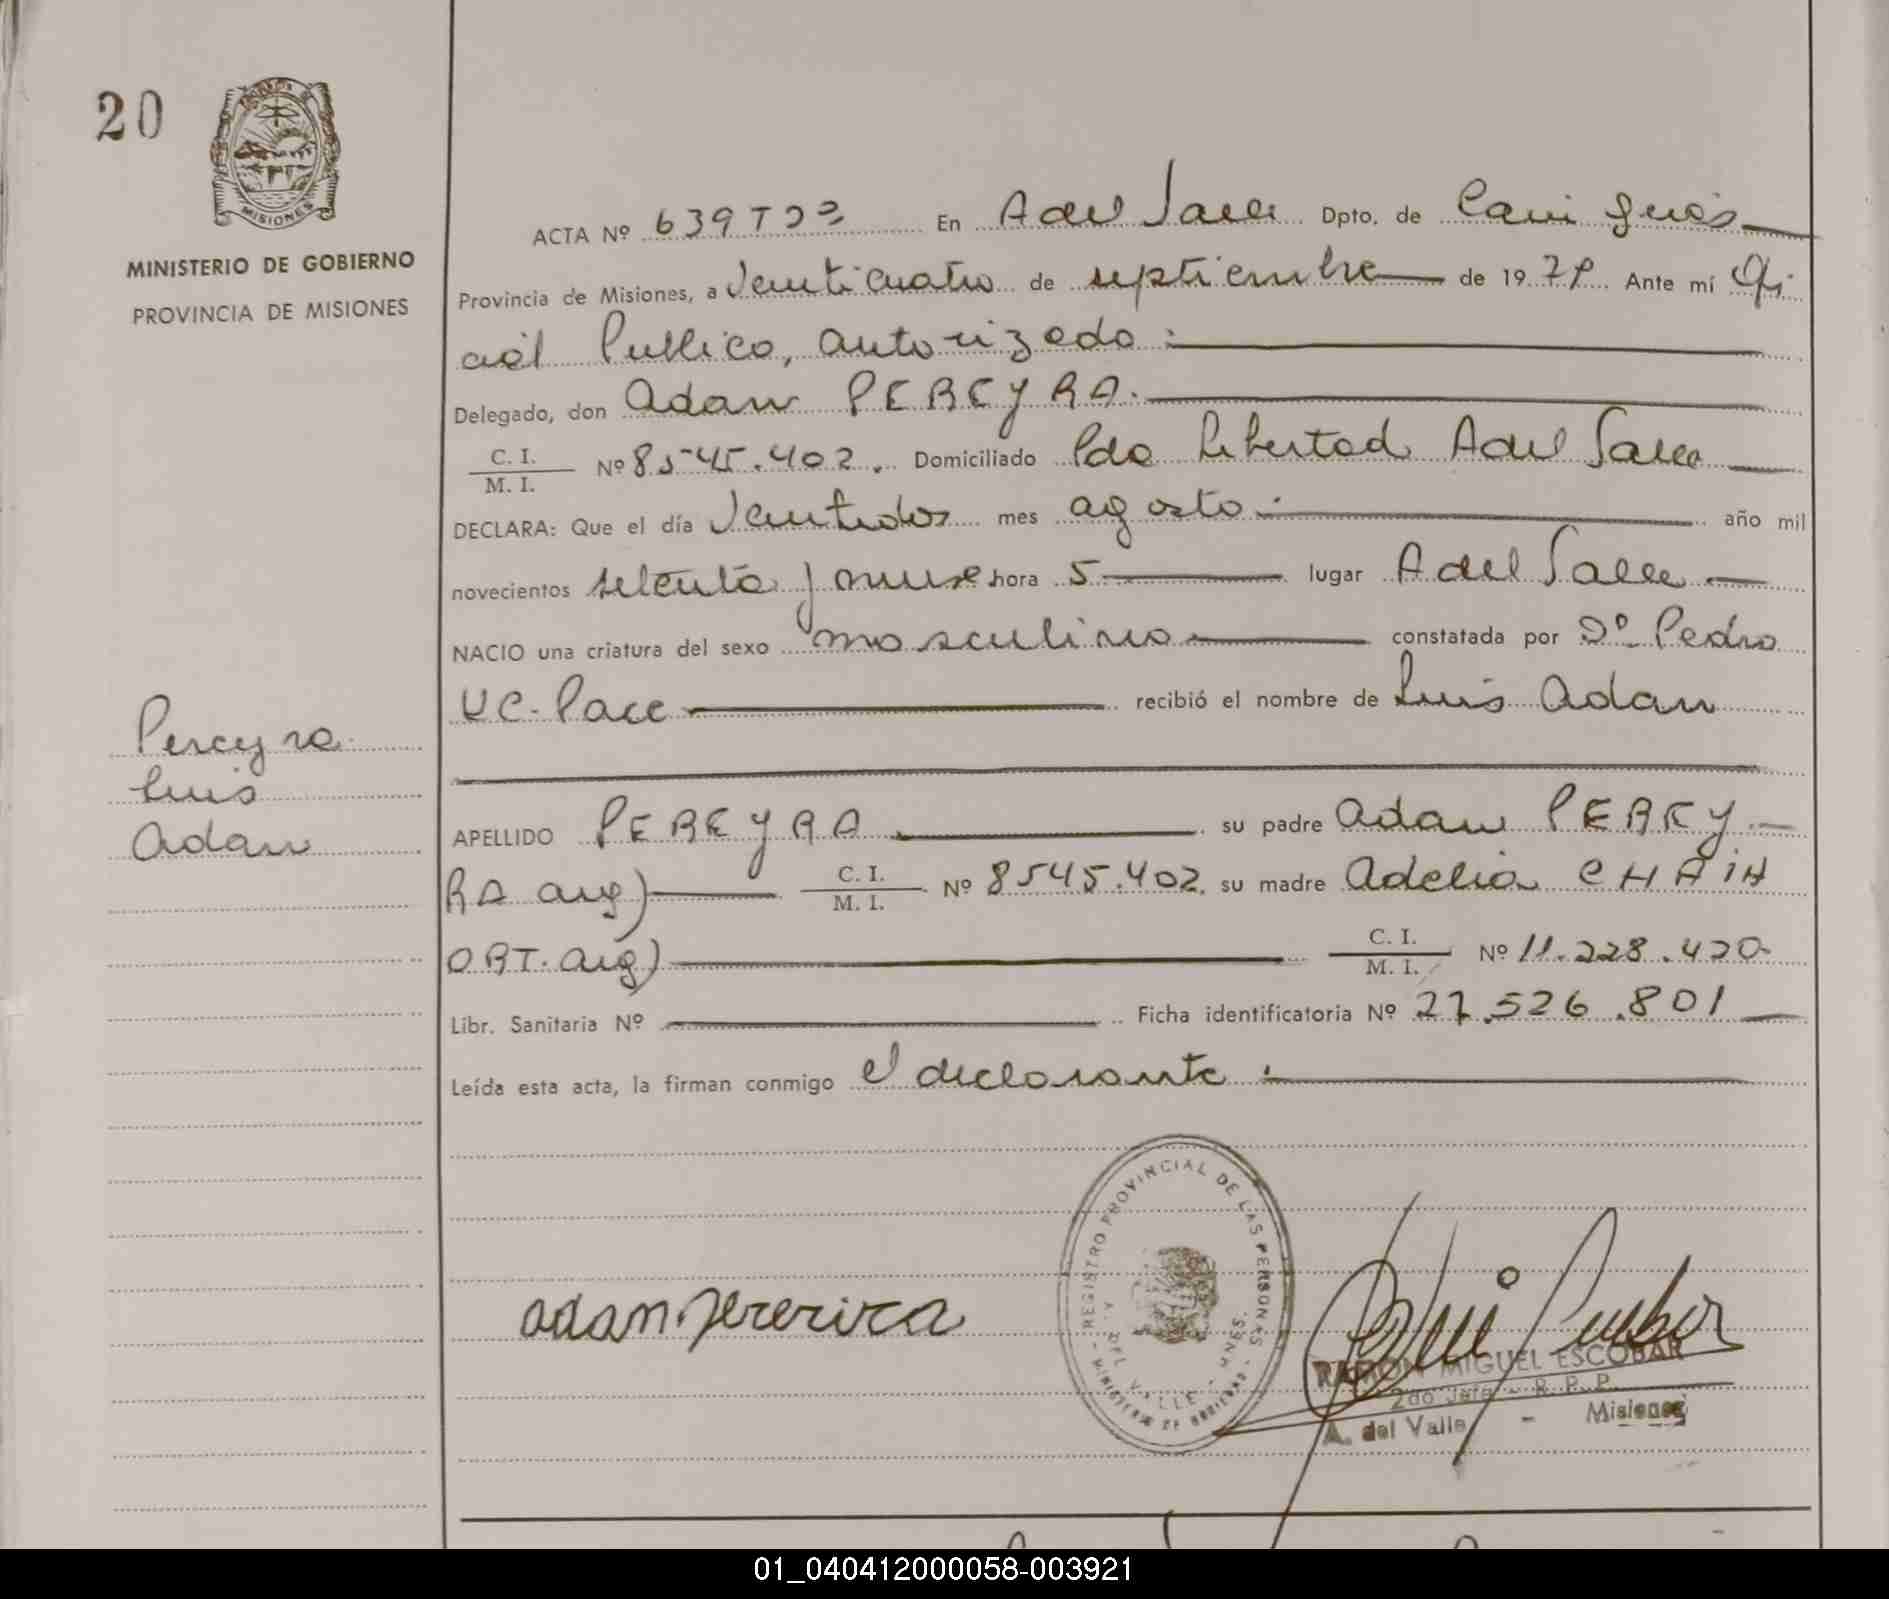 20
MISIONES
MINISTERIO DE GOBIERNO
PROVINCIA DE MISIONES
ACTA Nº 639 T En A del Valle Dpto. de Cainguás
Provincia de Misiones, a Venticuatro de septiembre de 1979. Ante mí Ofi
cial Publico, autorizado :
Delegado, don Adan PEREYRA.
C. I.
M. I. Nº 8545.402. Domiciliado Pdo Libertad A del Valle
DECLARA: Que el día Ventidos mes agosto año mil
novecientos setenta y nueve hora 5 lugar A del Valle
NACIO una criatura del sexo masculino constatada por Dº Pedro
Pace recibió el nombre de Luis Adan
Pereyra
Luis
Adan
APELLIDO PEREYRA su padre Adan PEREY-
RA arg) C. I.
M. I. Nº 8545.402. su madre Adelia CHAIH
ORT. arg) C. I.
M. I. Nº 11.228.420
Libr. Sanitaria Nº Ficha identificatoria Nº 27.526.801
Leída esta acta, la firman conmigo el declarante.
REGISTRO PROVINCIAL DE LAS PERSONAS
A. DEL VALLE - MNES.
MINISTERIO DE GOBIERNO
adan pererira
RAMON MIGUEL ESCOBAR
2do Jefe - R. P. P.
A. del Valle - Misiones
01_040412000058-003921